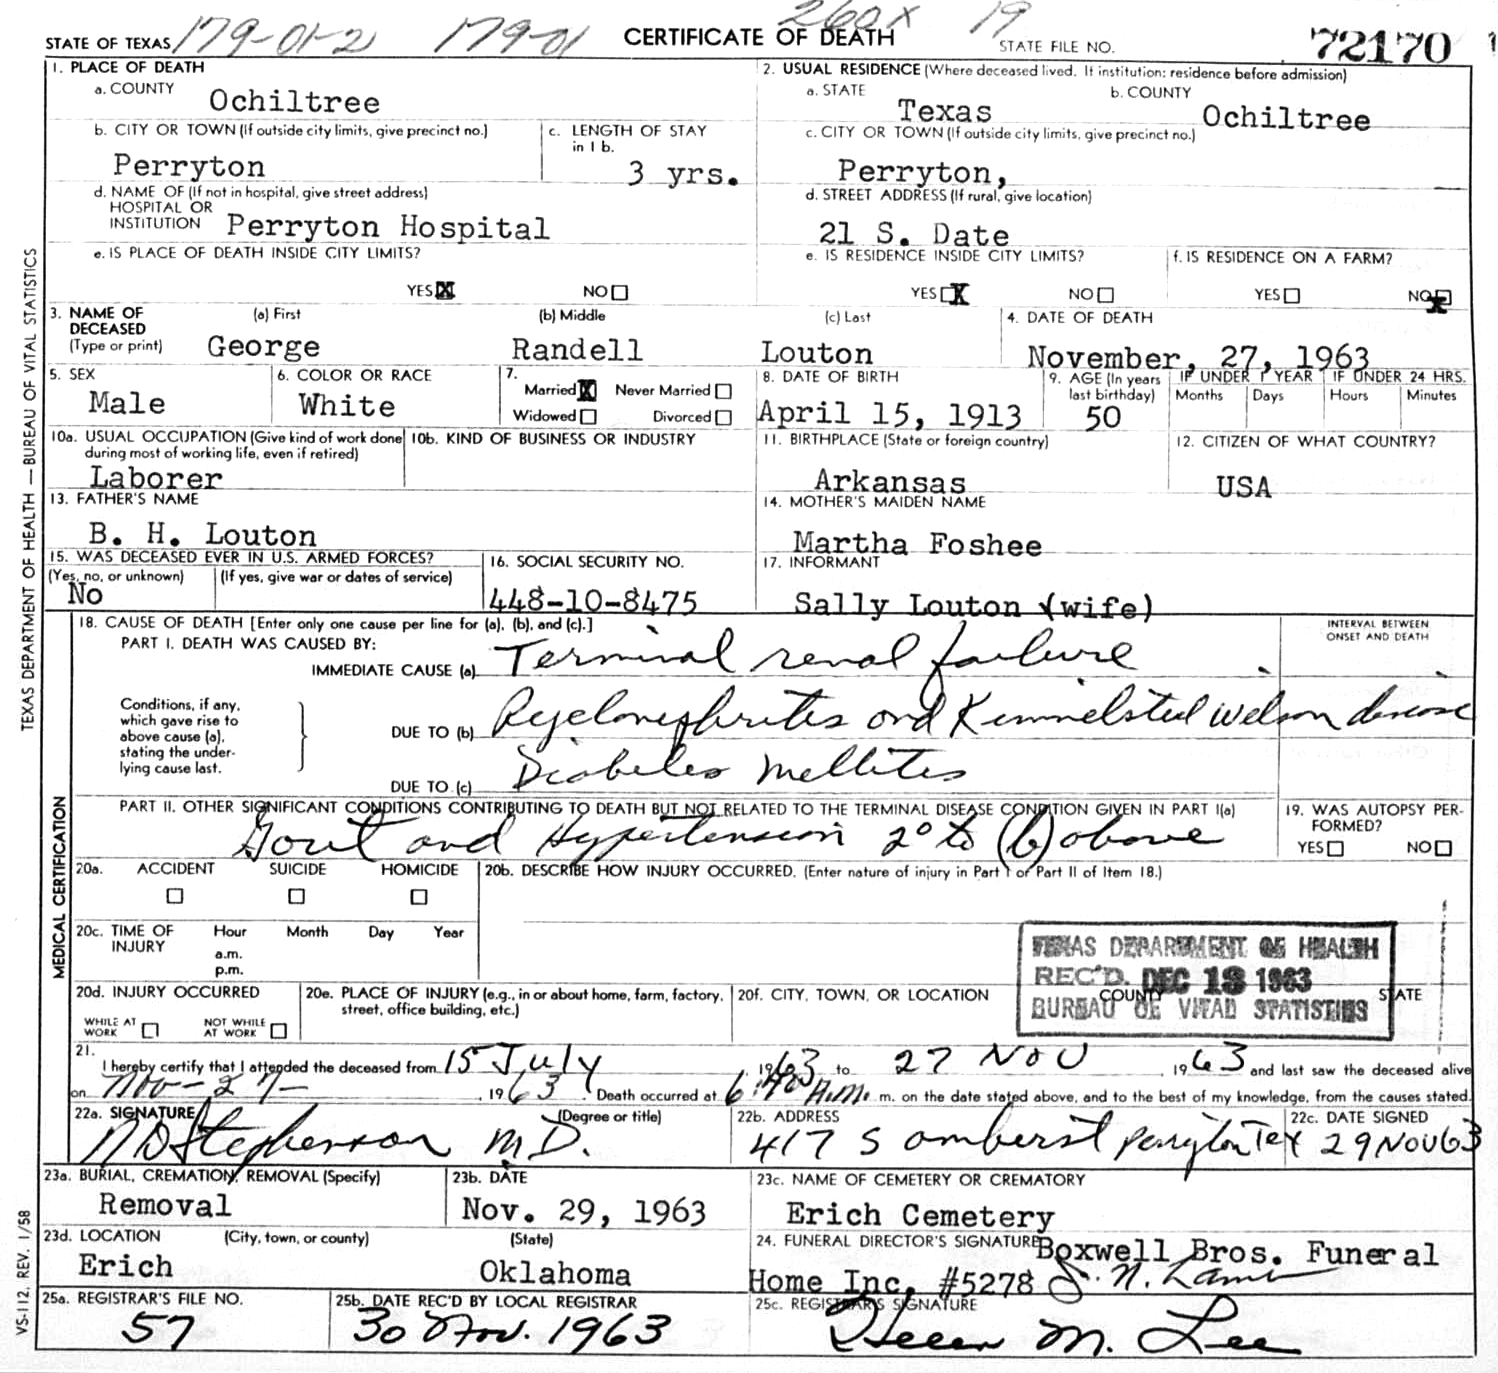 STATE OF TEXAS 179-01-2 179-01 CERTIFICATE OF DEATH 260x 19 STATE FILE NO. 72170
1. PLACE OF DEATH
a. COUNTY Ochiltree
2. USUAL RESIDENCE (Where deceased lived. If institution: residence before admission)
a. STATE Texas b. COUNTY Ochiltree
b. CITY OR TOWN (If outside city limits, give precinct no.) Perryton
c. LENGTH OF STAY in 1 b. 3 yrs.
c. CITY OR TOWN (If outside city limits, give precinct no.) Perryton,
d. NAME OF (If not in hospital, give street address)
HOSPITAL OR
INSTITUTION Perryton Hospital
d. STREET ADDRESS (If rural, give location)
21 S. Date
e. IS PLACE OF DEATH INSIDE CITY LIMITS?
YES X NO
e. IS RESIDENCE INSIDE CITY LIMITS?
YES X NO
f. IS RESIDENCE ON A FARM?
YES NO X
3. NAME OF DECEASED (Type or print)
(a) First George (b) Middle Randell (c) Last Louton
4. DATE OF DEATH
November, 27, 1963
5. SEX Male
6. COLOR OR RACE White
7. Married X Never Married
Widowed Divorced
8. DATE OF BIRTH April 15, 1913
9. AGE (In years last birthday) 50
IF UNDER 1 YEAR Months Days
IF UNDER 24 HRS. Hours Minutes
10a. USUAL OCCUPATION (Give kind of work done during most of working life, even if retired)
Laborer
10b. KIND OF BUSINESS OR INDUSTRY
11. BIRTHPLACE (State or foreign country)
Arkansas
12. CITIZEN OF WHAT COUNTRY?
USA
13. FATHER'S NAME
B. H. Louton
14. MOTHER'S MAIDEN NAME
Martha Foshee
15. WAS DECEASED EVER IN U.S. ARMED FORCES?
(Yes, no, or unknown) (If yes, give war or dates of service)
No
16. SOCIAL SECURITY NO.
448-10-8475
17. INFORMANT
Sally Louton (wife)
18. CAUSE OF DEATH [Enter only one cause per line for (a), (b), and (c).]
INTERVAL BETWEEN ONSET AND DEATH
PART I. DEATH WAS CAUSED BY:
IMMEDIATE CAUSE (a) Terminal renal failure
Conditions, if any, which gave rise to above cause (a), stating the under-lying cause last.
DUE TO (b) Pyelonephrites and Kimmelsteil Wilson disease
DUE TO (c) Diabetes mellites
PART II. OTHER SIGNIFICANT CONDITIONS CONTRIBUTING TO DEATH BUT NOT RELATED TO THE TERMINAL DISEASE CONDITION GIVEN IN PART I(a)
Gout and Hypertension 2° to (b) above
19. WAS AUTOPSY PER-FORMED?
YES NO
20a. ACCIDENT SUICIDE HOMICIDE
20b. DESCRIBE HOW INJURY OCCURRED. (Enter nature of injury in Part I or Part II of Item 18.)
20c. TIME OF INJURY Hour Month Day Year
a.m.
p.m.
TEXAS DEPARTMENT OF HEALTH
REC'D. DEC 18 1963
BUREAU OF VITAL STATISTICS
20d. INJURY OCCURRED
WHILE AT WORK NOT WHILE AT WORK
20e. PLACE OF INJURY (e.g., in or about home, farm, factory, street, office building, etc.)
20f. CITY, TOWN, OR LOCATION COUNTY STATE
21.
I hereby certify that I attended the deceased from 15 July, 1963 to 27 Nov, 1963 and last saw the deceased alive
on Nov-27-, 1963. Death occurred at A.M. m. on the date stated above, and to the best of my knowledge, from the causes stated.
22a. SIGNATURE (Degree or title)
N D Stephenson M.D.
22b. ADDRESS
417 S Amherst Perryton Tex
22c. DATE SIGNED
29 NOV 63
23a. BURIAL, CREMATION, REMOVAL (Specify)
Removal
23b. DATE
Nov. 29, 1963
23c. NAME OF CEMETERY OR CREMATORY
Erich Cemetery
23d. LOCATION (City, town, or county) (State)
Erich Oklahoma
24. FUNERAL DIRECTOR'S SIGNATURE Boxwell Bros. Funeral
Home Inc, #5278
25a. REGISTRAR'S FILE NO.
57
25b. DATE REC'D BY LOCAL REGISTRAR
30 Nov. 1963
25c. REGISTRAR'S SIGNATURE
Helen M. Lee
TEXAS DEPARTMENT OF HEALTH — BUREAU OF VITAL STATISTICS
MEDICAL CERTIFICATION
VS-112. REV. 1/58